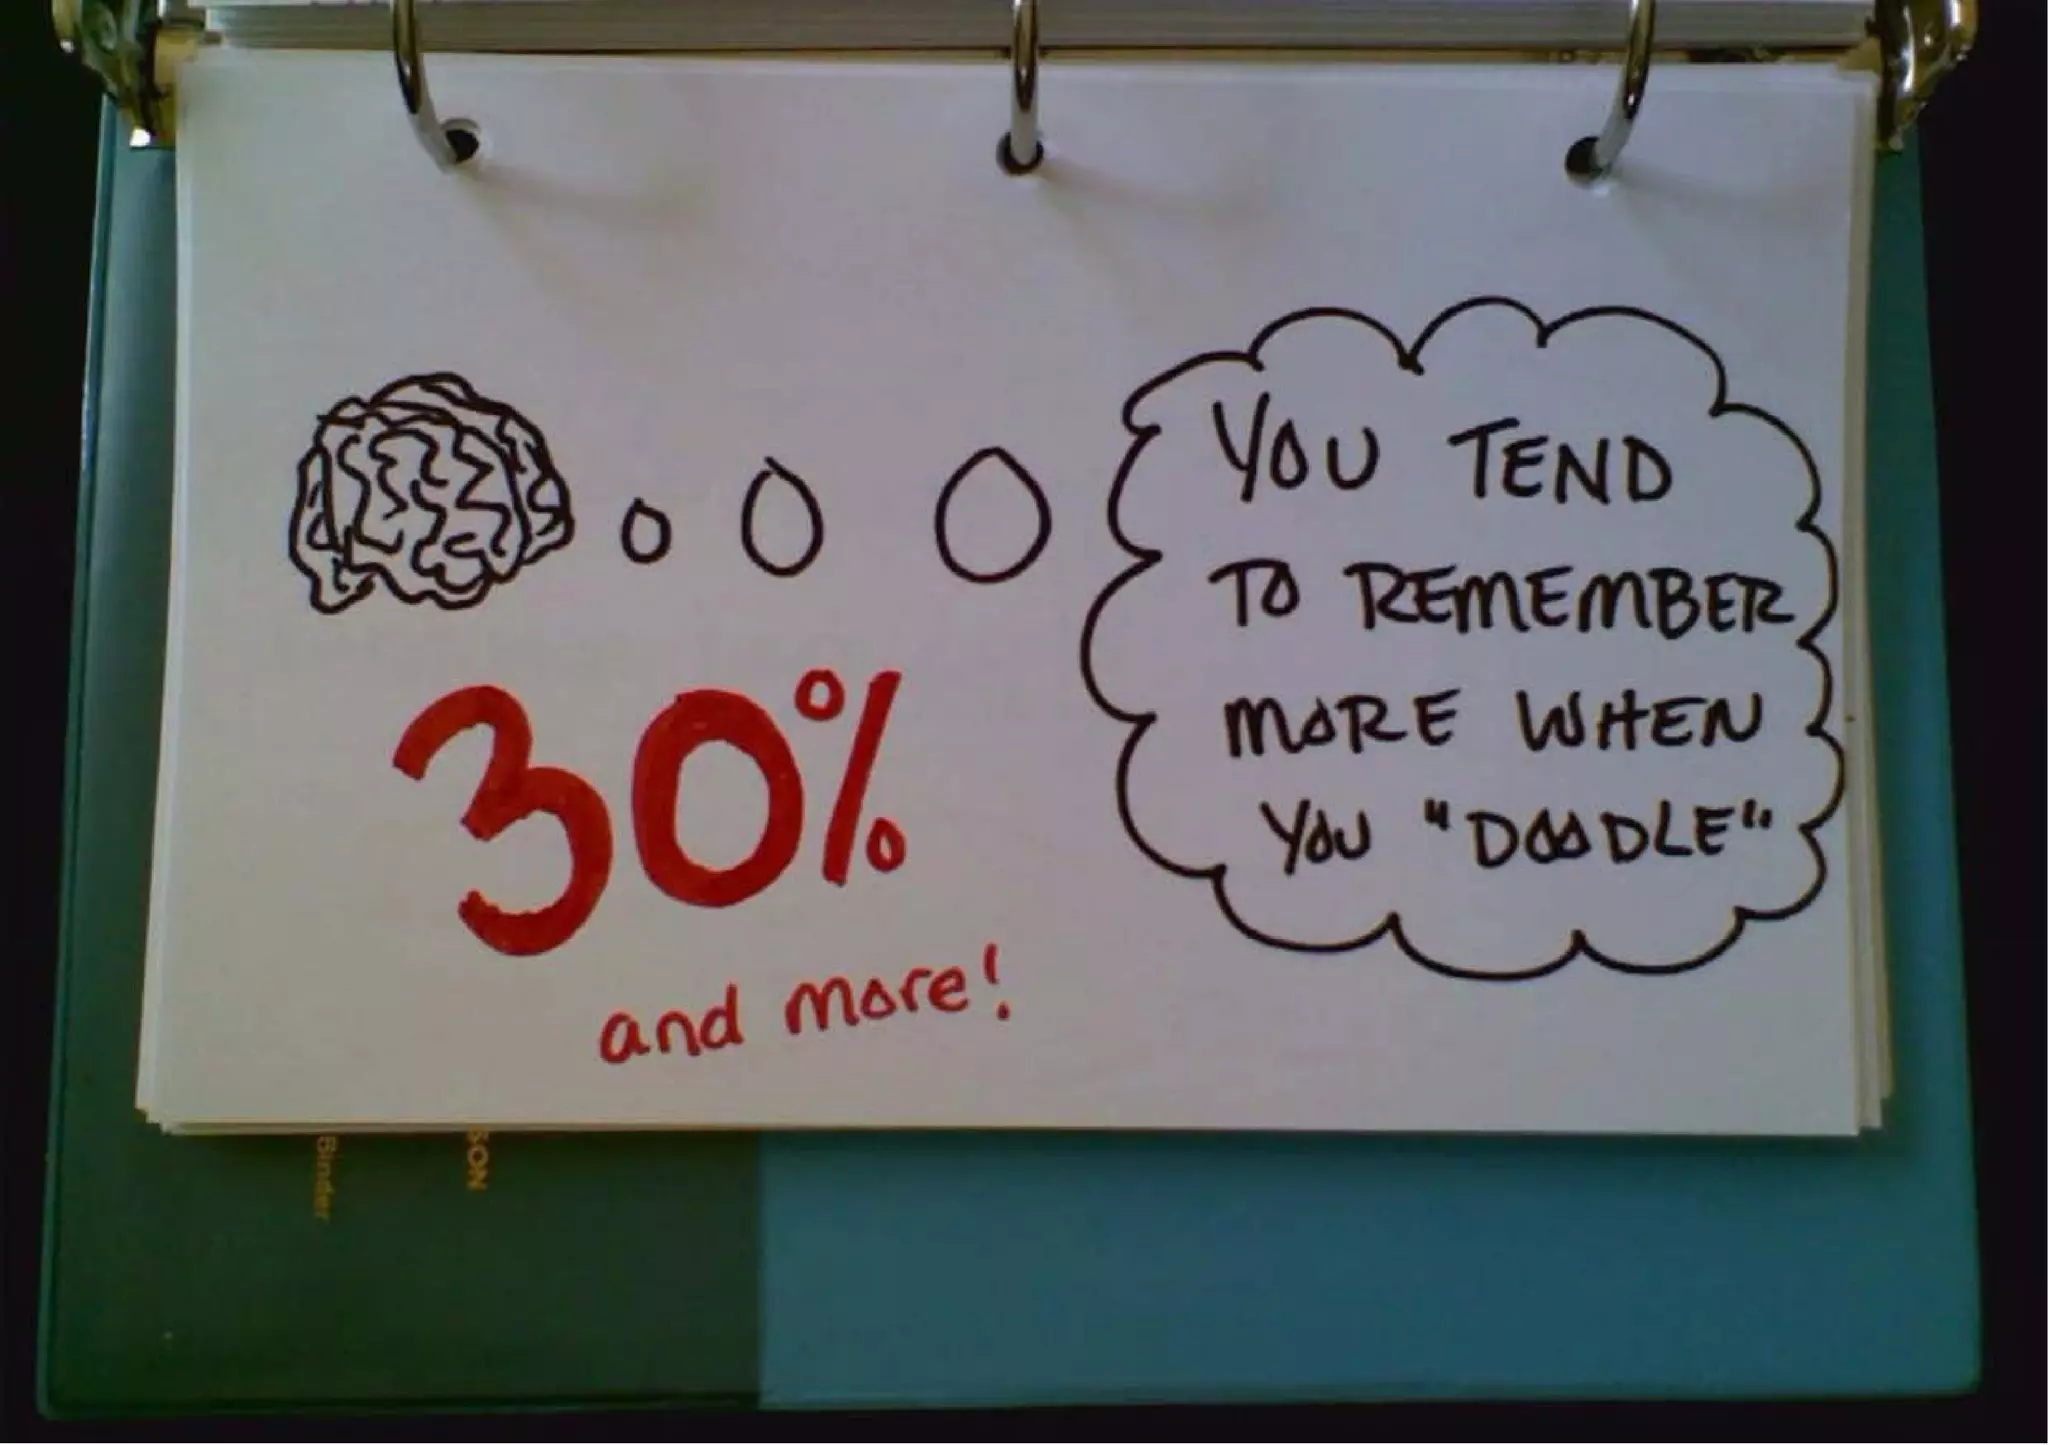 YOU TEND
TO REMEMBER
MORE WHEN
YOU "DOODLE"
30%
and more!
SON
Binder